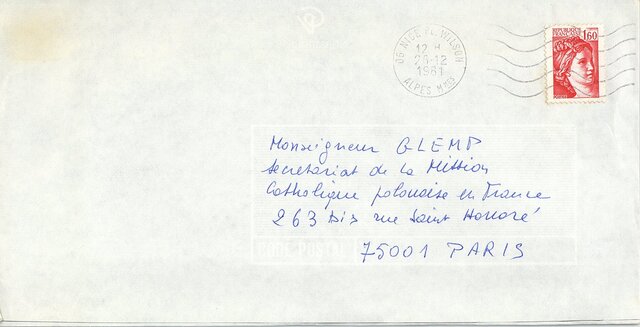 06 NICE PL. WILSON
12 H
26-12
1981
ALPES Mmes
REPUBLIQUE FRANCAISE
1,60
Monseigneur GLEMP
Secretariat de la Mission
Catholique polonaise en France
263 bis rue Saint Honoré
75001 PARIS
CODE POSTAL